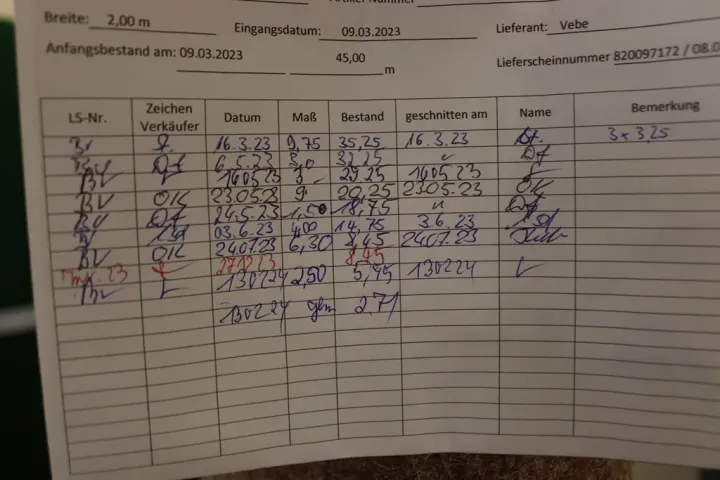 Breite: 2,00 m
Eingangsdatum: 09.03.2023
Lieferant: Vebe
Anfangsbestand am: 09.03.2023 45,00 m
Lieferscheinnummer 820097172 / 08.0
LS-Nr. Zeichen Verkäufer Datum Maß Bestand geschnitten am Name Bemerkung
16.3.23 9,75 35,25 16.3.23 3x3,25
6.5.23 3,0 32,25
BV 160523 3 - 29,25 160523
BV OK 23.05.23 9 20,25 23.05.23 OK
BV 24.5.23 1,50 18,75
03.6.23 4,00 14,75 3.6.23
BV OK 240723 6,30 8,45 240723
Inv. 23 271223 8,45
BV 130224 2,50 5,95 130224
130224 2,71